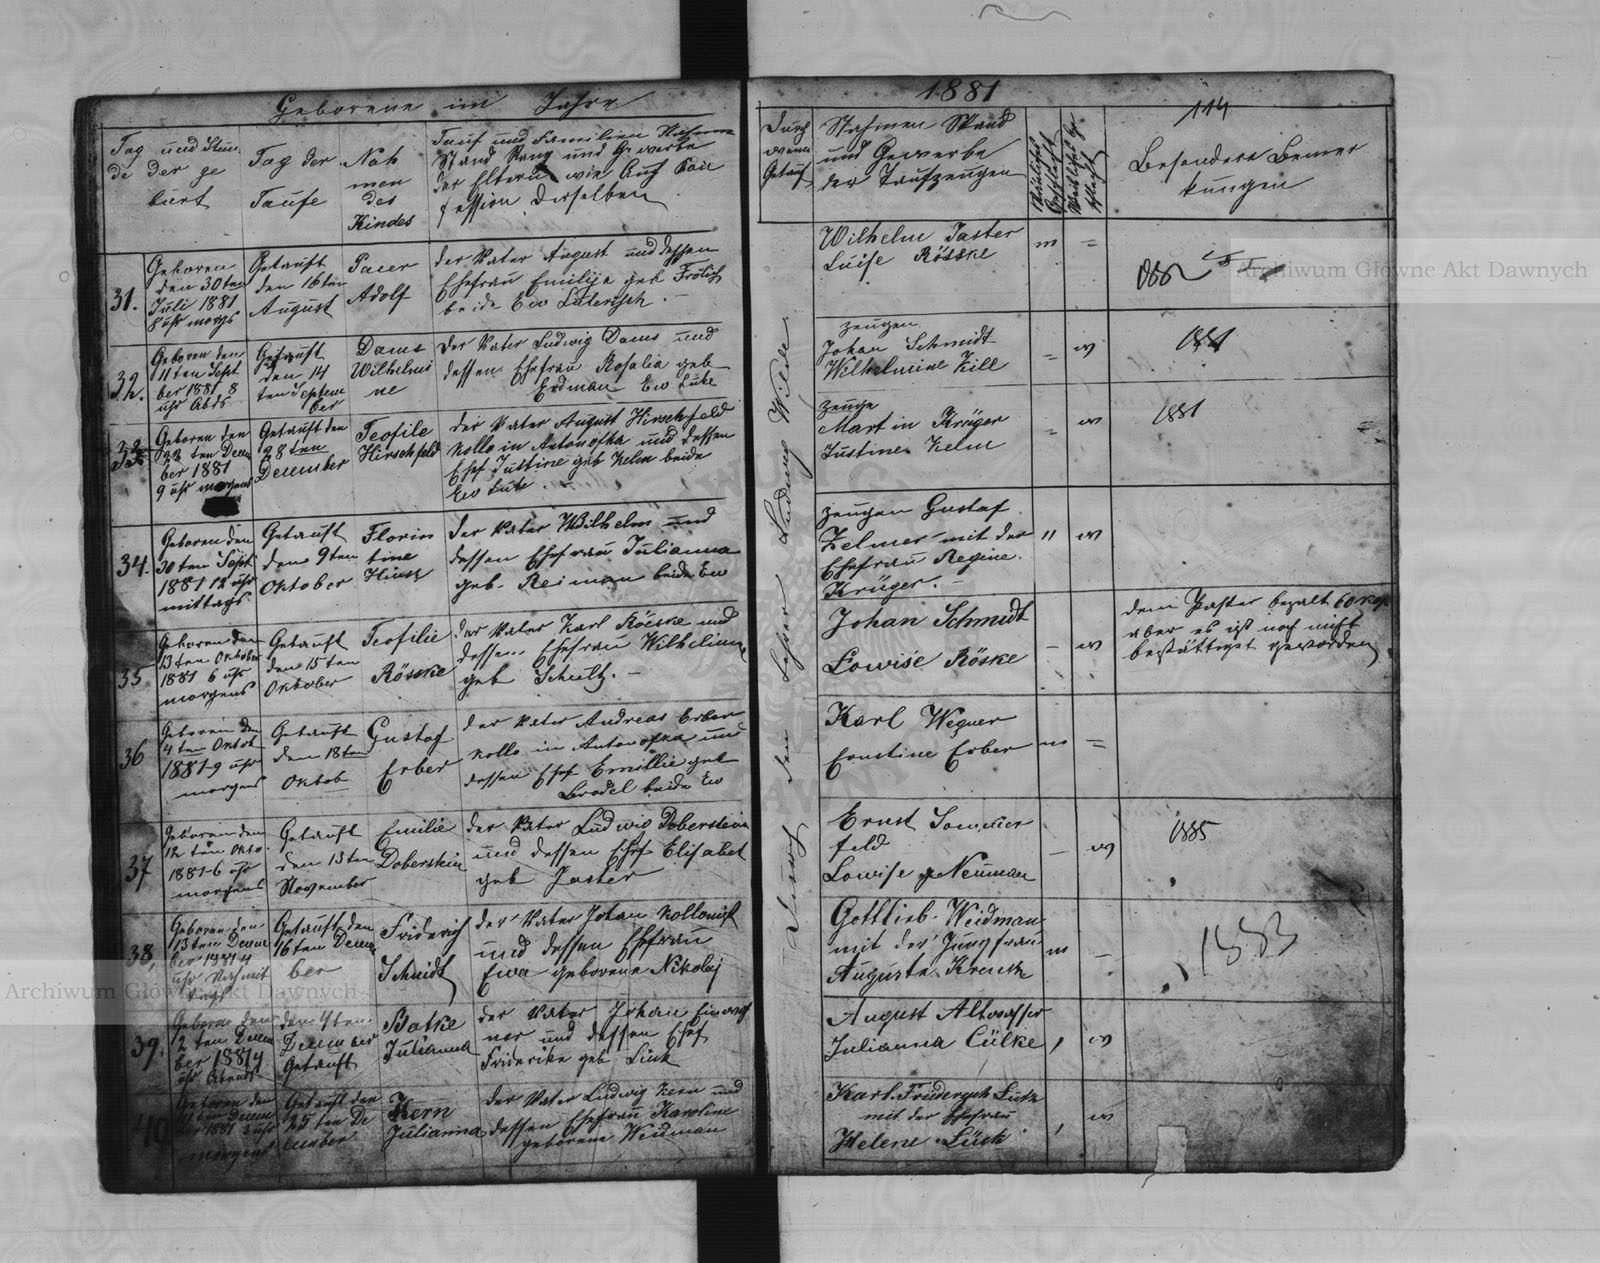 Geborene im Jahre
1881
114
Tag und Stun
de der ge
burt
Tag der
Taufe
Nah
men
des
Kindes
Tauf und Familien Nahme
Stand Rang und Gewerbe
der Eltern wie auch Kon
fession derselben
Durch
wem
Getauft
Nahmen Stand
und Gewerbe
der Taufzeugen
Besondere Bemer
kungen
31.
Geboren
den 30ten
Juli 1881
8 uhr morgs
Getauft
den 16ten
August
Adolf
der Vater August und dessen
Ehefrau Emilije geb Frölich
beide Ew Luterisch.
Wilhelm Jaster
Luise Rösske
m
32.
Geboren den
11ten Sept
ber 1881 8
uhr Abds
Getauft
den 14
ten Septem
ber
Dams
Wilhelmi
ne
der Vater Ludwig Dams und
dessen Ehefrau Rosalia geb
Erdman Ew Lute
zeugen
Johan Schmidt
Wilhelmine Kill
w
1881
33
Geboren den
22 ten Decem
ber 1881
9 uhr morgens
Getauft den
28 ten
December
Teofile
Hirschfeld
der Vater August Hirschfeld
Kollo in Antonofka und dessen
Ehef Justine geb Kelm beide
Ew Lute
zeuge
Martin Krüger
Justine Kelm
w
1881
34.
Geboren den
30ten Sept
1881 12 uhr
mittags
Getauft
den 9ten
Oktober
Florin
tine
Hinz
der Vater Wilhelm und
dessen Ehefrau Julianna
geb. Reiman beide Ew
zeugen Gustaf
Zelmer mit der
Ehefrau Regine
Krüger.
w
35
Geboren den
13ten Oktober
1881 6 uhr
morgens
Getauft
den 15ten
Oktober
Teofilie
Rösske
der Vater Karl Röeske und
dessen Ehefrau Wilhelmine
geb Schultz.
Johan Schmidt
Lowise Röske
w
dem Paster bezalt 60 kop
aber es ist noch nicht
bestättiget geworden
36
Geboren den
4ten Oktob
1881 9 uhr
morgens
Getauft
den 18ten
Oktob
Gustaf
Erber
der Vater Andreas Erber
Kollo in Antonofka und
dessen Ehef Emillie geb
Brodel beide Ew
Karl Wegner
Ernstine Erber
m
37
Geboren den
12 ten Okto
1881 6 uhr
morgens
Getauft
den 13ten
November
Emilie
Doberstein
der Vater Ludwig Doberstein
und dessen Ehef Elisabet
geb Jaster
Ernst Sommer
feld
Lowise Neuman
w
1885
38.
Geboren den
13ten Decem
ber 1881 4
uhr Nachmit
tags
Getauft den
16ten Decem
ber
Friderich
Schmidt
der Vater Johan Kollonist
und dessen Ehefrau
Ewa geborene Nikolej
Gottlieb Weidman
mit der Jungfrau
Auguste
m
1883
39.
Geboren den
2 ten Decem
ber 1881 4
uhr Abends
den 4ten
December
Getauft
Batke
Julianna
der Vater Johan Einwoh
ner und dessen Ehef
Friderike geb Lück
August Altwasser
Julianna Lülke
w
40
Geboren den
ber 1881 3 uhr
morgens
Getauft den
25 ten De
cember
Kern
Julianna
der Vater Ludwig Kern und
dessen Ehefrau Karoline
geborene Weidman
Karl Friderych Lück
mit der Ehefrau
Helene Lück
w
Durch den Lehrer Ludwig Wilde
Archiwum Główne Akt Dawnych
Archiwum Główne Akt Dawnych